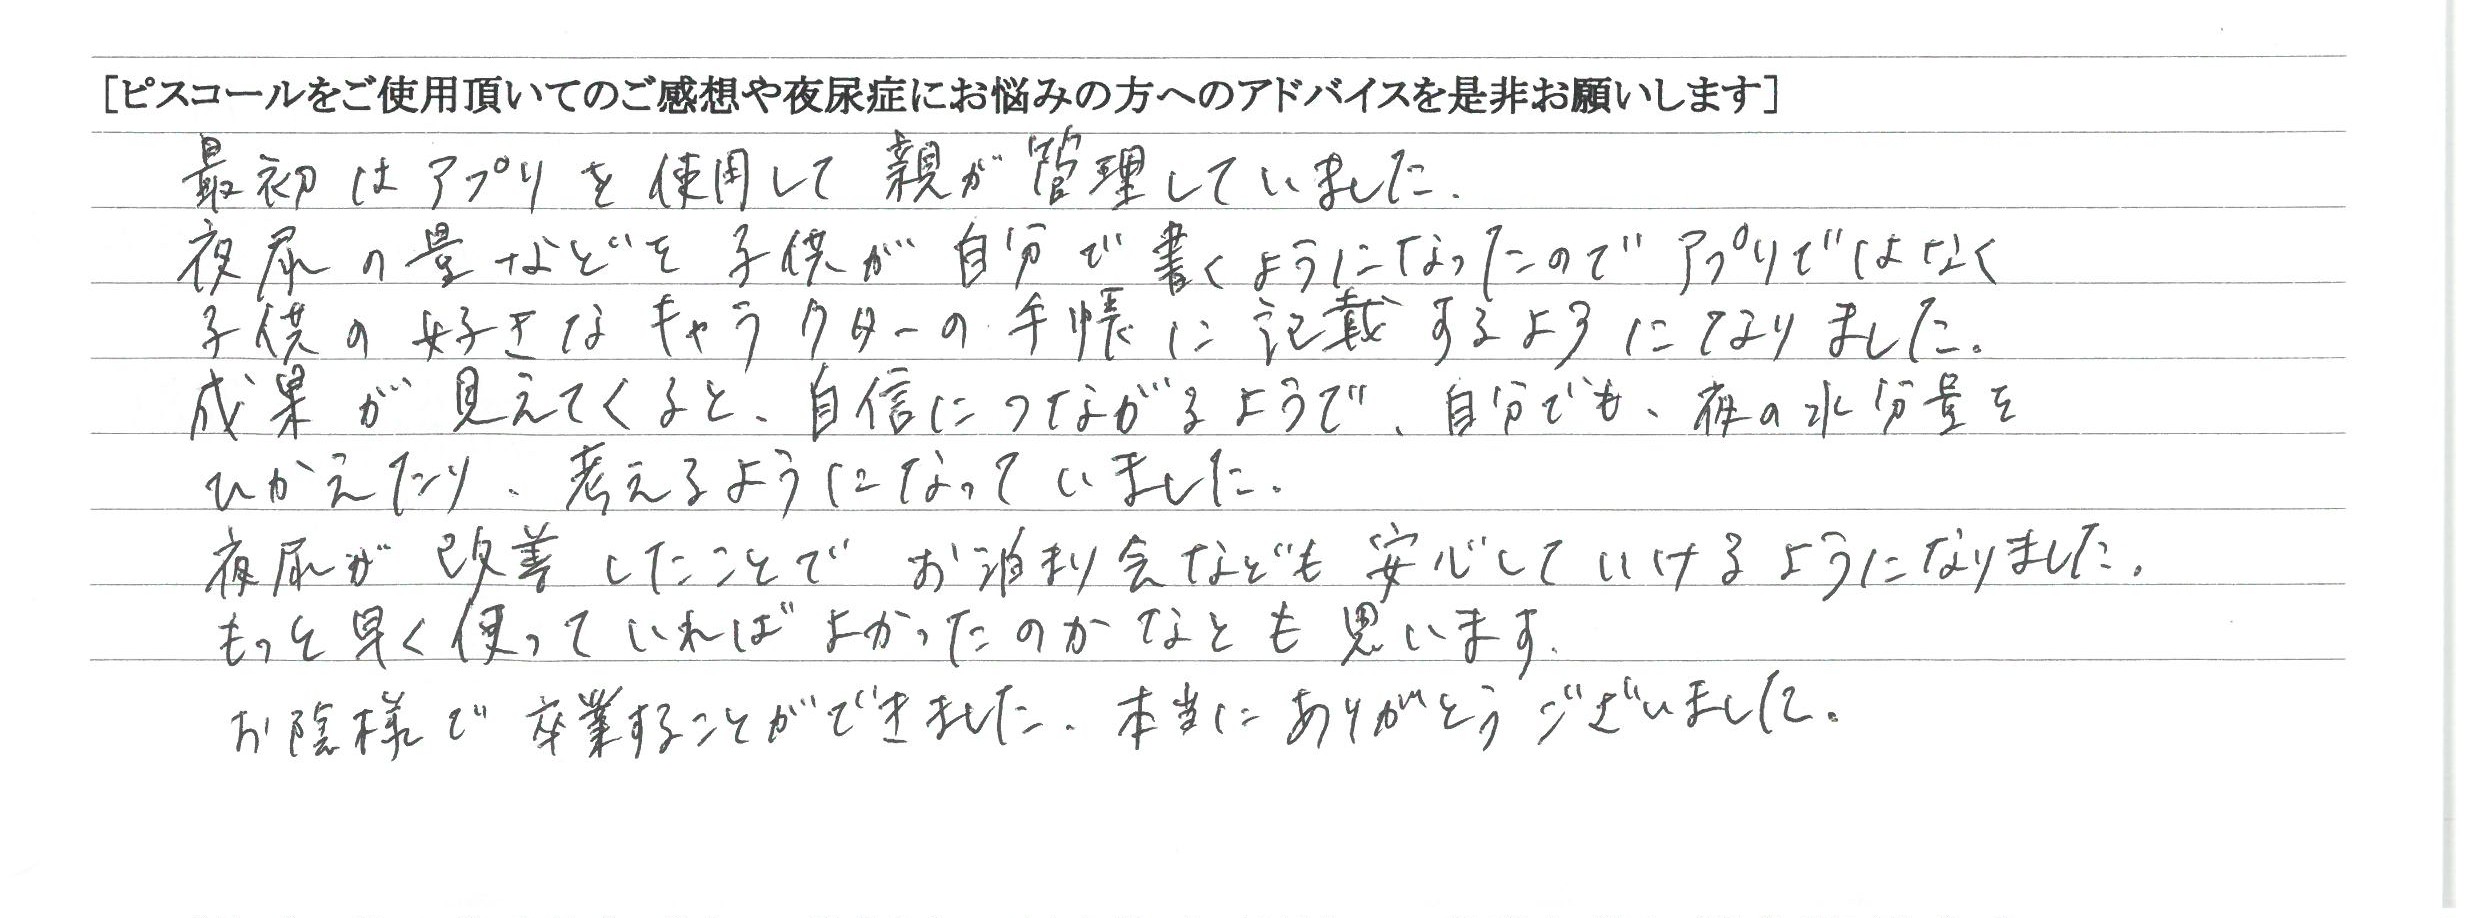 ［ピスコールをご使用頂いてのご感想や夜尿症にお悩みの方へのアドバイスを是非お願いします］
最初はアプリを使用して親が管理していました.
夜尿の量などを子供が自分で書くようになったのでアプリではなく
子供の好きなキャラクターの手帳に記載するようになりました。
成果が見えてくると、自信につながるようで、自分でも、夜の水分量を
ひかえたり、考えるようになっていました.
夜尿が改善したことでお泊まり会なども安心していけるようになりました.
もっと早く使っていればよかったのかなとも思います.
お陰様で卒業することができました. 本当にありがとうございました。